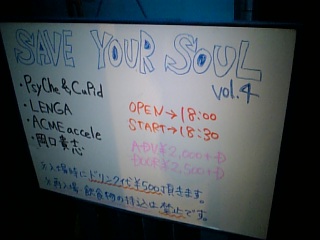 SAVE YOUR SOUL
vol.4
・PsyChe & CuPid
・LENGA
・ACME accele
・岡口貴志
OPEN→18:00
START→18:30
ADV¥2,000+D
DOOR¥2,500+D
※入場時にドリンク代¥500頂きます。
※再入場、飲食物の持込は禁止です。